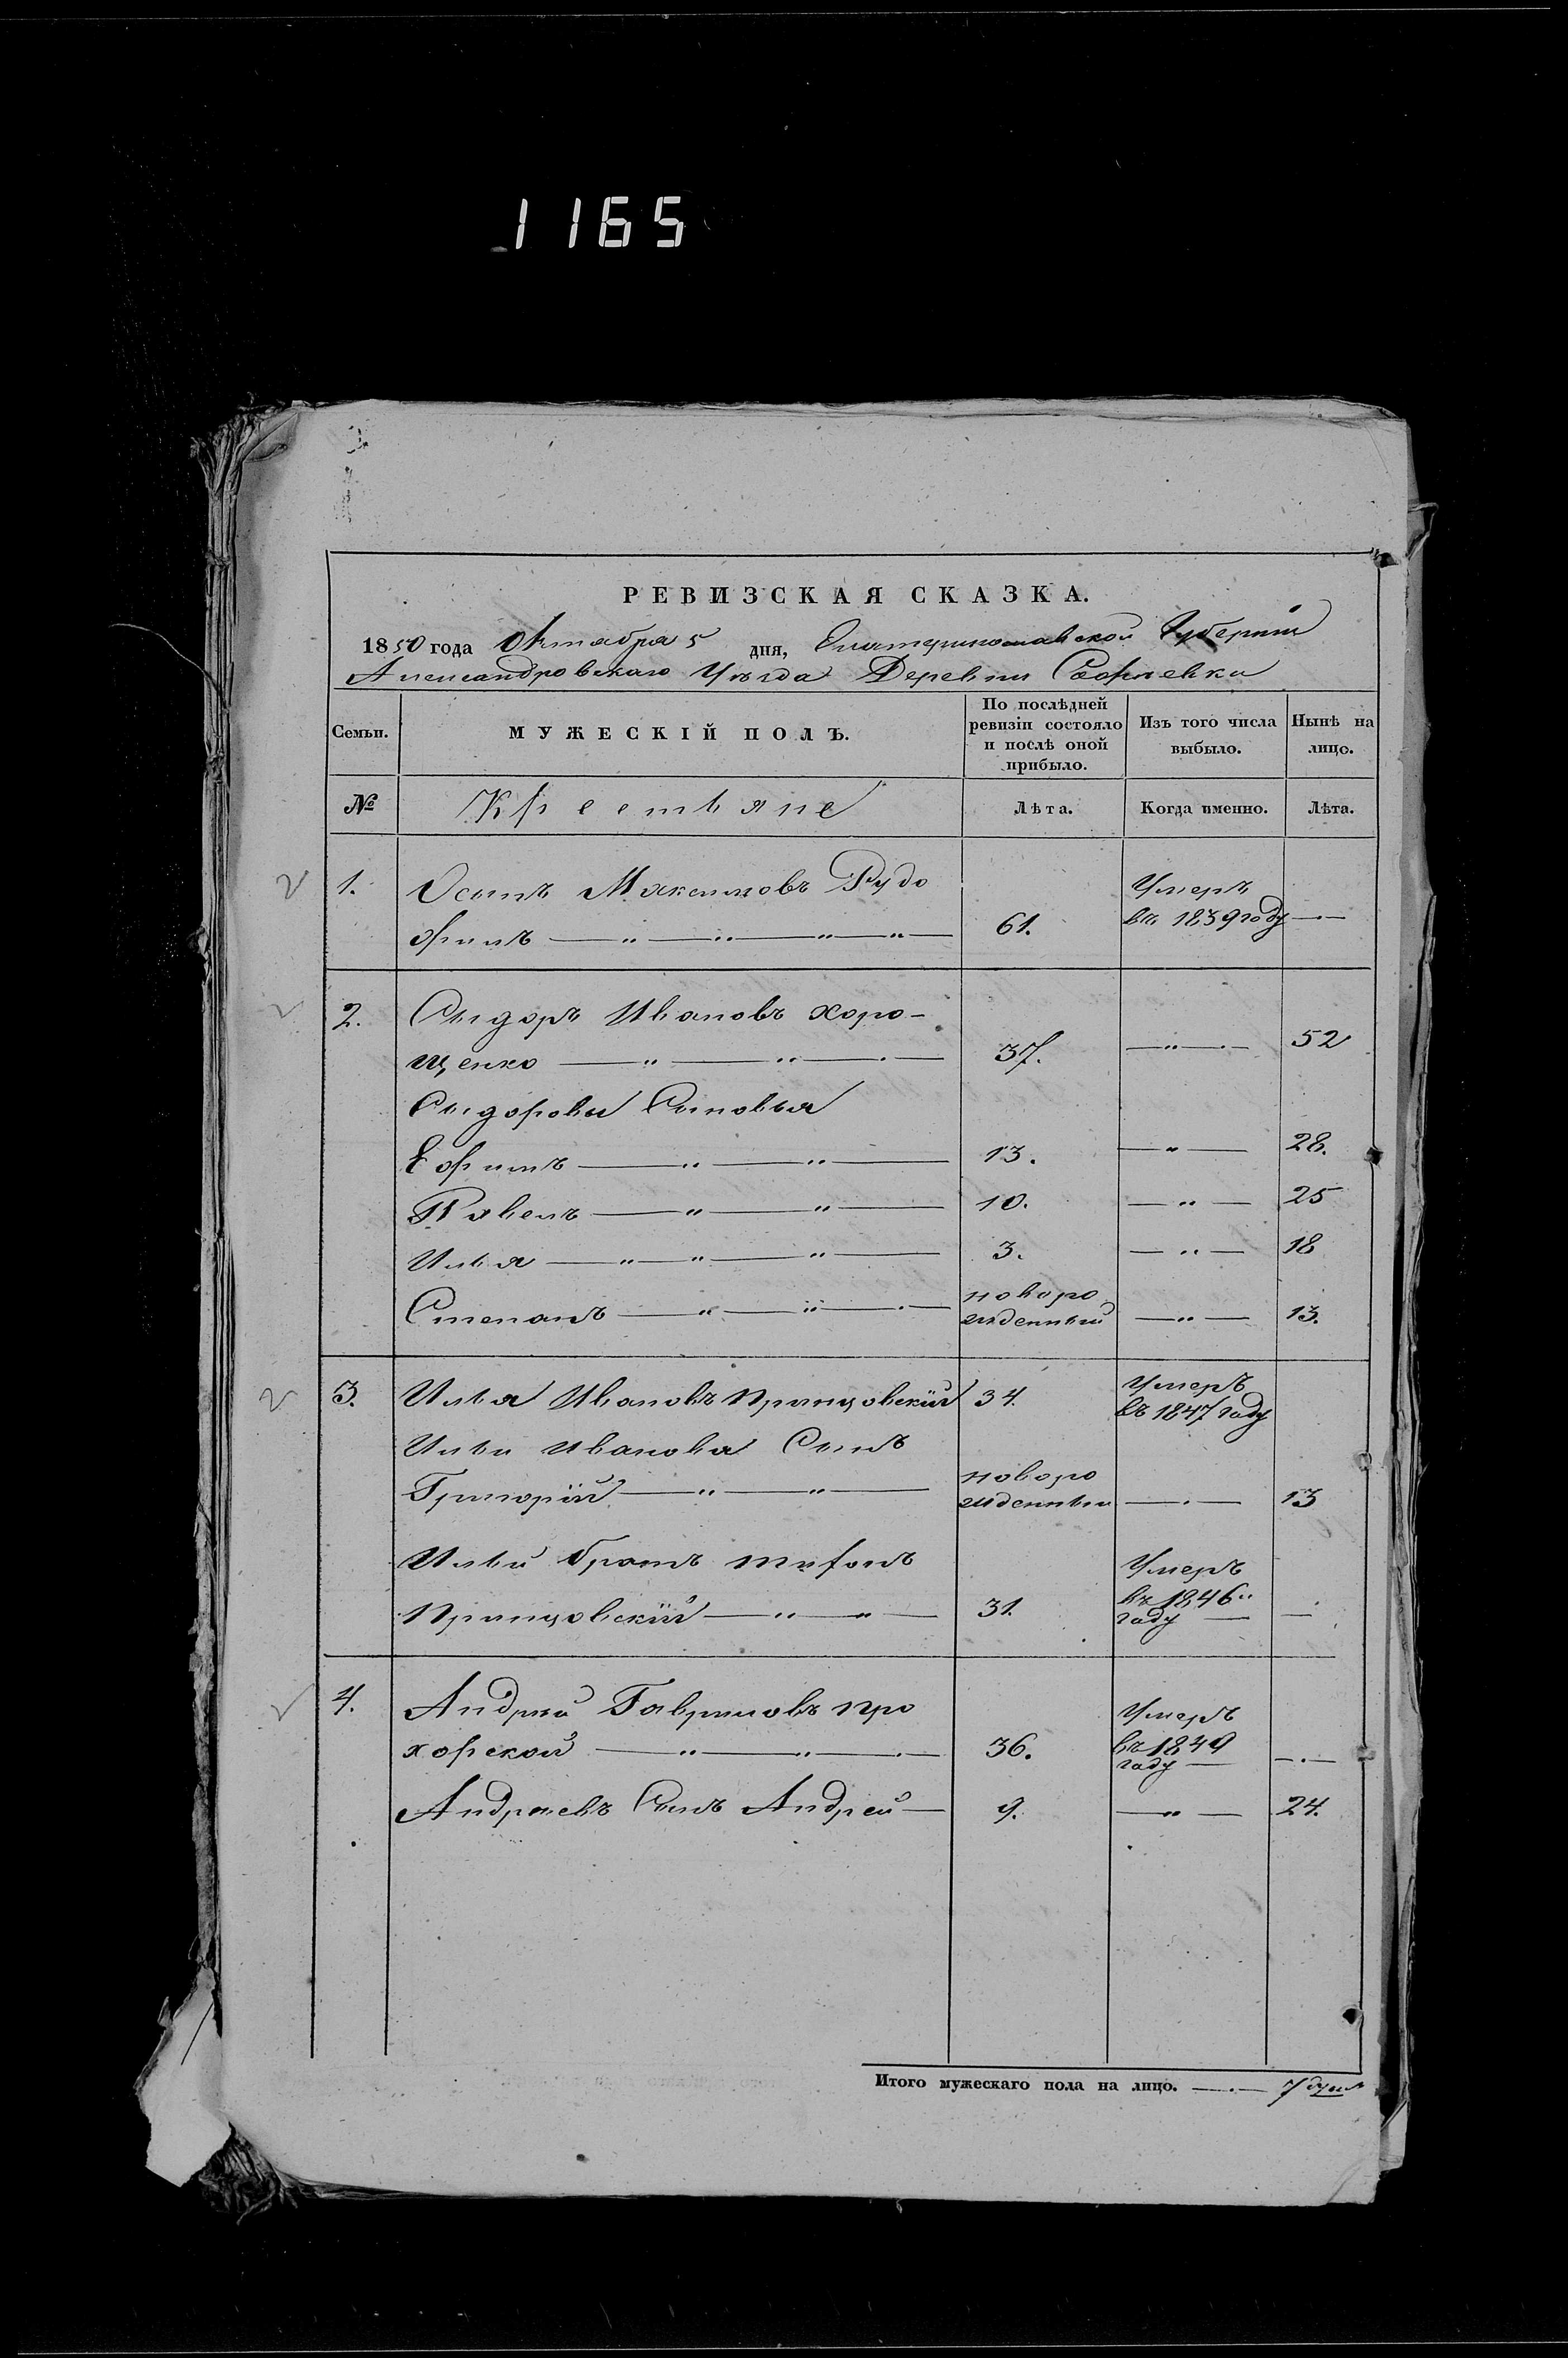 1165
РЕВИЗСКАЯ СКАЗКА.
1850 года Октября 5 дня, Екатеринославской Губерніи
Александровскаго Уѣзда Деревни Софіевки
Семьи. МУЖЕСКІЙ ПОЛЪ. По послѣдней ревизіи состояло и послѣ оной прибыло. Изъ того числа выбыло. Нынѣ на лицо.
№ Крестьяне Лѣта. Когда именно. Лѣта.
1. Осипъ Максимовъ Рудо
фимъ 61. Умеръ въ 1839 году
2. Сыдоръ Ивановъ Хоро-
щенко 37. 52
Сыдоровы Сыновья
Ефимъ 13. 28.
Павелъ 10. 25
Илья 3. 18
Степанъ новорожденный 13.
3. Илья Ивановъ 34. Умеръ въ 1847 году
Ильи Иванова Сынъ
Григорій новорожденный 13
Ильи братъ
31. Умеръ въ 1846 году
4. Андрей Гавриловъ Про
хорской 36. Умеръ въ 1849 году
Андреевъ Сынъ Андрей 9. 24.
Итого мужескаго пола на лицо. 7 душъ